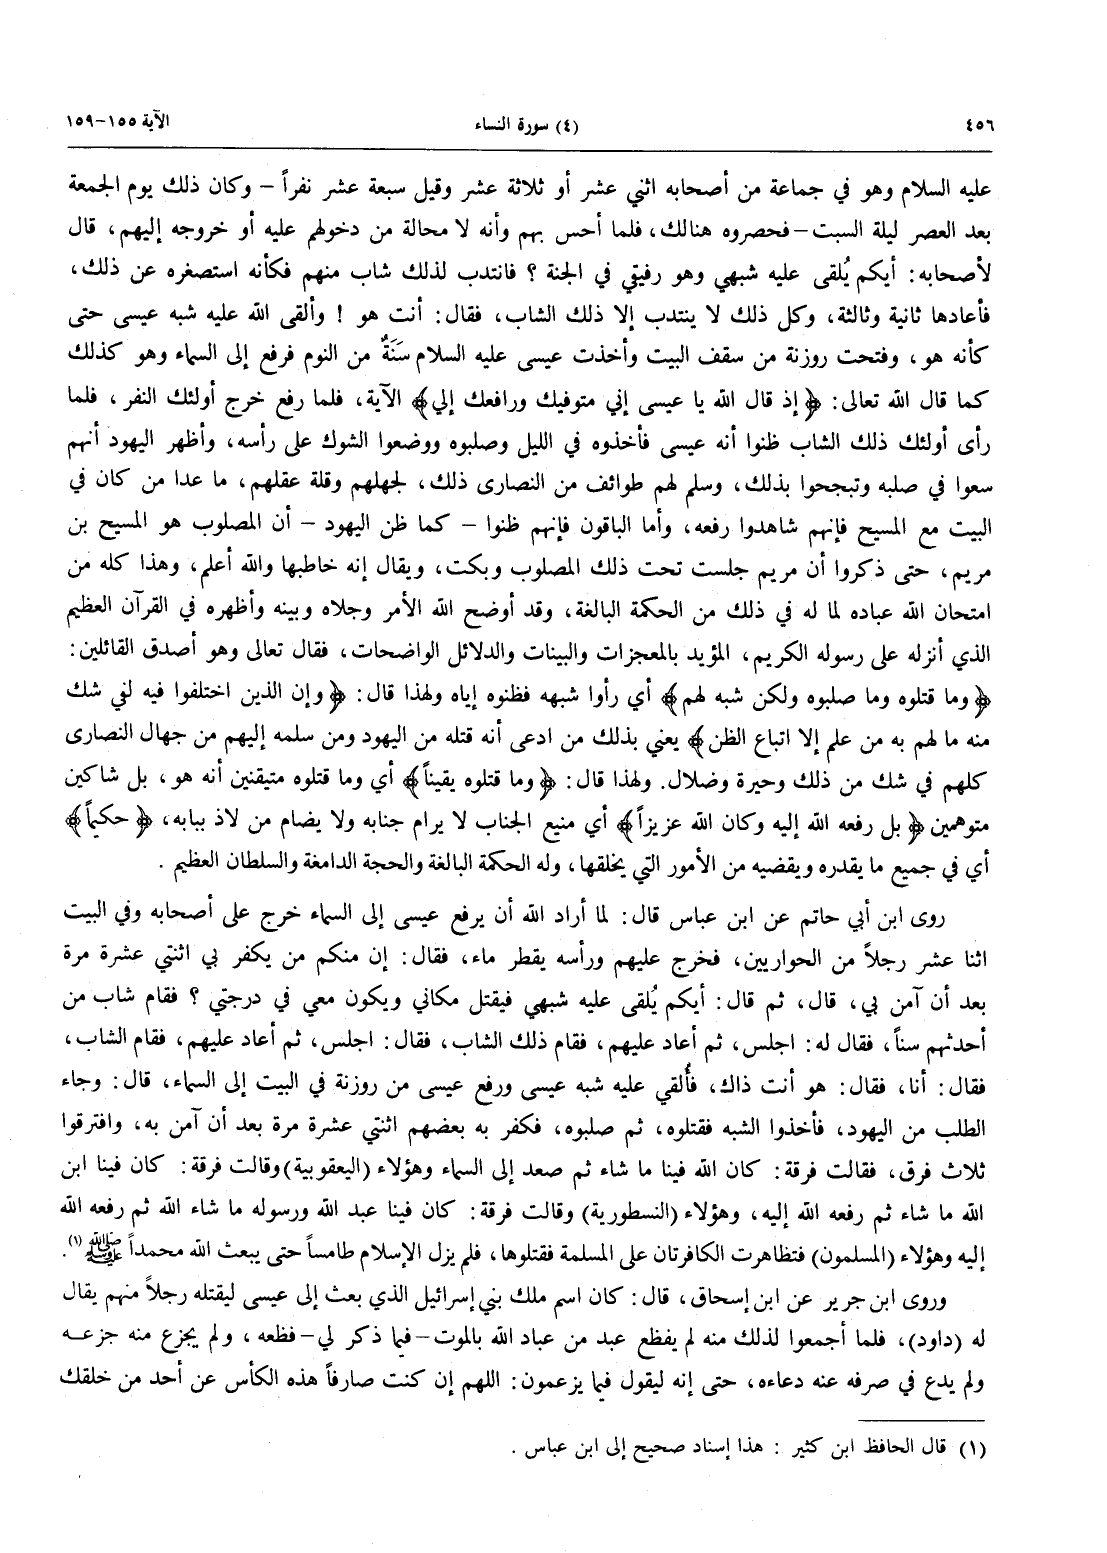 ٤٥٦ (٤) سورة النساء الآية ١٥٥-١٥٩
عليه السلام وهو في جماعة من أصحابه اثني عشر أو ثلاثة عشر وقيل سبعة عشر نفراً - وكان ذلك يوم الجمعة
بعد العصر ليلة السبت - فحصروه هنالك، فلما أحس بهم وأنه لا محالة من دخولهم عليه أو خروجه إليهم، قال
لأصحابه: أيكم يُلقى عليه شبهي وهو رفيقي في الجنة ؟ فانتدب لذلك شاب منهم فكأنه استصغره عن ذلك،
فأعادها ثانية وثالثة، وكل ذلك لا ينتدب إلا ذلك الشاب، فقال: أنت هو ! وألقى الله عليه شبه عيسى حتى
كأنه هو، وفتحت روزنة من سقف البيت وأخذت عيسى عليه السلام سَنَةٌ من النوم فرفع إلى السماء وهو كذلك
كما قال الله تعالى: ﴿إذ قال الله يا عيسى إني متوفيك ورافعك إلي﴾ الآية، فلما رفع خرج أولئك النفر، فلما
رأى أولئك ذلك الشاب ظنوا أنه عيسى فأخذوه في الليل وصلبوه ووضعوا الشوك على رأسه، وأظهر اليهود أنهم
سعوا في صلبه وتبجحوا بذلك، وسلم لهم طوائف من النصارى ذلك، لجهلهم وقلة عقلهم، ما عدا من كان في
البيت مع المسيح فإنهم شاهدوا رفعه، وأما الباقون فإنهم ظنوا - كما ظن اليهود - أن المصلوب هو المسيح بن
مريم، حتى ذكروا أن مريم جلست تحت ذلك المصلوب وبكت، ويقال إنه خاطبها والله أعلم، وهذا كله من
امتحان الله عباده لما له في ذلك من الحكمة البالغة، وقد أوضح الله الأمر وجلاه وبينه وأظهره في القرآن العظيم
الذي أنزله على رسوله الكريم، المؤيد بالمعجزات والبينات والدلائل الواضحات، فقال تعالى وهو أصدق القائلين:
﴿وما قتلوه وما صلبوه ولكن شبه لهم﴾ أي رأوا شبهه فظنوه إياه ولهذا قال: ﴿وإن الذين اختلفوا فيه لفي شك
منه ما لهم به من علم إلا اتباع الظن﴾ يعني بذلك من ادعى أنه قتله من اليهود ومن سلمه إليهم من جهال النصارى
كلهم في شك من ذلك وحيرة وضلال. ولهذا قال: ﴿وما قتلوه يقيناً﴾ أي وما قتلوه متيقنين أنه هو، بل شاكين
متوهمين ﴿بل رفعه الله إليه وكان الله عزيزاً﴾ أي منيع الجناب لا يرام جنابه ولا يضام من لاذ ببابه، ﴿حكيماً﴾
أي في جميع ما يقدره ويقضيه من الأمور التي يخلقها، وله الحكمة البالغة والحجة الدامغة والسلطان العظيم .
روى ابن أبي حاتم عن ابن عباس قال: لما أراد الله أن يرفع عيسى إلى السماء خرج على أصحابه وفي البيت
اثنا عشر رجلاً من الحواريين، فخرج عليهم ورأسه يقطر ماء، فقال: إن منكم من يكفر بي اثنتي عشرة مرة
بعد أن آمن بي، قال، ثم قال: أيكم يُلقى عليه شبهي فيقتل مكاني ويكون معي في درجتي ؟ فقام شاب من
أحدثهم سناً، فقال له: اجلس، ثم أعاد عليهم، فقام ذلك الشاب، فقال: اجلس، ثم أعاد عليهم، فقام الشاب،
فقال: أنا، فقال: هو أنت ذاك، فأُلقي عليه شبه عيسى ورفع عيسى من روزنة في البيت إلى السماء، قال: وجاء
الطلب من اليهود، فأخذوا الشبه فقتلوه، ثم صلبوه، فكفر به بعضهم اثنتي عشرة مرة بعد أن آمن به، وافترقوا
ثلاث فرق، فقالت فرقة: كان الله فينا ما شاء ثم صعد إلى السماء وهؤلاء (اليعقوبية) وقالت فرقة: كان فينا ابن
الله ما شاء ثم رفعه الله إليه، وهؤلاء (النسطورية) وقالت فرقة: كان فينا عبد الله ورسوله ما شاء الله ثم رفعه الله
إليه وهؤلاء (المسلمون) فتظاهرت الكافرتان على المسلمة فقتلوها، فلم يزل الإسلام طامساً حتى يبعث الله محمداً ﷺ (١).
وروى ابن جرير عن ابن إسحاق، قال: كان اسم ملك بني إسرائيل الذي بعث إلى عيسى ليقتله رجلاً منهم يقال
له (داود)، فلما أجمعوا لذلك منه لم يفظع عبد من عباد الله بالموت - فيما ذكر لي - فظعه، ولم يجزع منه جزعـه
ولم يدع في صرفه عنه دعاءه، حتى إنه ليقول فيما يزعمون: اللهم إن كنت صارفاً هذه الكأس عن أحد من خلقك
(١) قال الحافظ ابن كثير : هذا إسناد صحيح إلى ابن عباس .